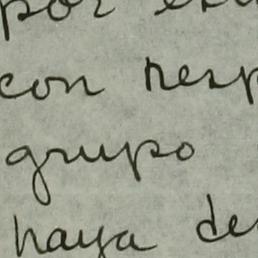 por
con resp
grupo
haya de